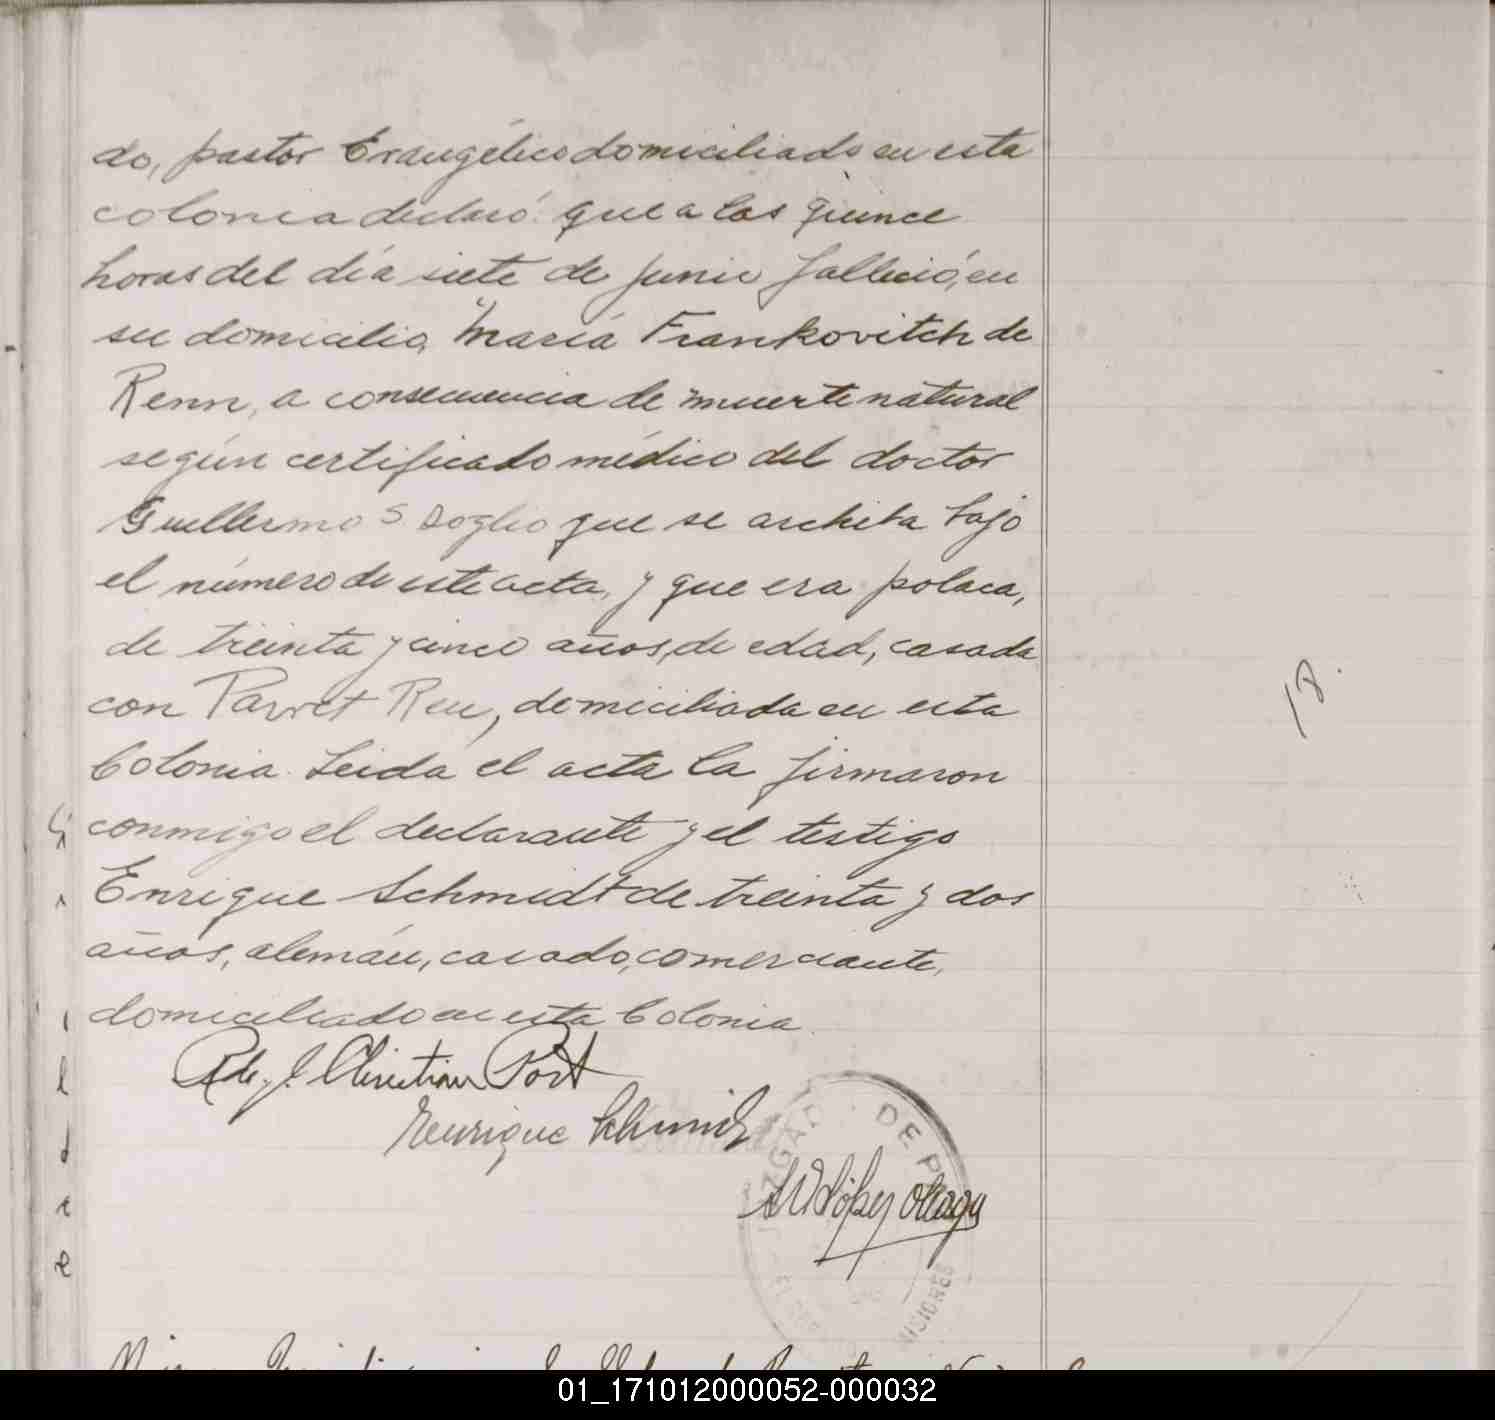 do, pastor Evangélico domiciliado en esta
colonia declaró: que a las quince
horas del día siete de junio falleció, en
su domicilio, María Frankovitch de
Renn, a consecuencia de muerte natural
según certificado médico del doctor
Guillermo S Doglio que se archiba bajo
el número de este acta, y que era polaca,
de treinta y cinco años, de edad, casada
con Ren, domiciliada en esta
Colonia. Leida el acta la firmaron
conmigo el declarante y el testigo
Enrique Schmidt de treinta y dos
años, alemán, casado, comerciante,
domiciliado en esta Colonia.
J. Christian Port
Henrique Schmidt
JUZGADO DE P
López
MISIONES
18.
01_171012000052-000032